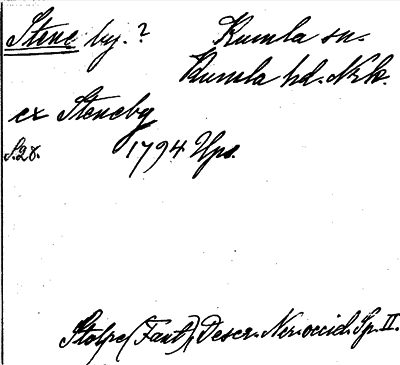 Stene by. ? Kumla sn.
Kumla hd. Nrk.
ex Stenebg
S.28. 1794 Ups.
Stolpe (Fant), Descr. Ner. occid. Sp. II.